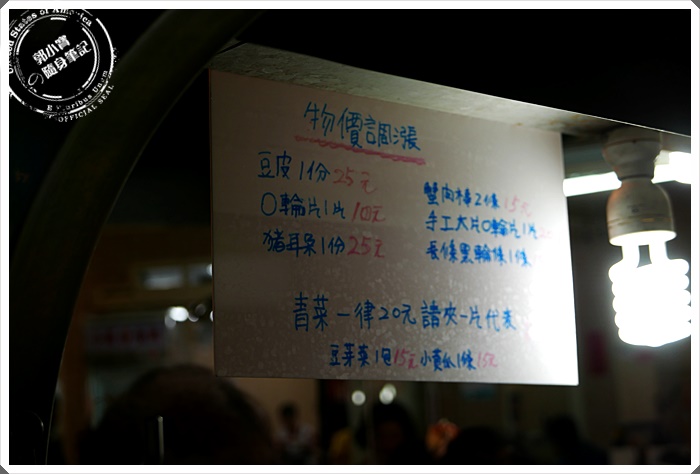 United States of America
郭小寶
の隨身筆記
E Pluribus Unum
OFFICIAL SEAL
物價調漲
豆皮1份25元
O輪片1片10元
豬耳朵1份25元
蟹肉棒2條15元
手工大片O輪片1片
長條黑輪條1條
青菜一律20元請夾一片代表
豆芽菜1包15元小黃瓜1條15元